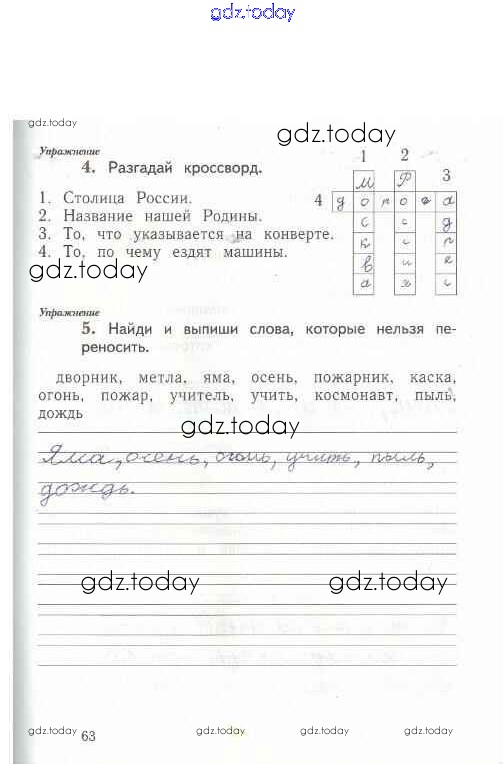 gdz.today
gdz.today gdz.today gdz.today gdz.today
gdz.today
Упражнение
4. Разгадай кроссворд.
1 2
3
1. Столица России.
2. Название нашей Родины.
3. То, что указывается на конверте.
4. То, по чему ездят машины.
4
м Р
д о р о г а
с с д
к с р
в и е
а я с
gdz.today gdz.today
Упражнение
5. Найди и выпиши слова, которые нельзя пе-
реносить.
дворник, метла, яма, осень, пожарник, каска,
огонь, пожар, учитель, учить, космонавт, пыль,
дождь
gdz.today
Яма, осень, огонь, учить, пыль,
дождь.
gdz.today gdz.today
gdz.today gdz.today gdz.today gdz.today
63